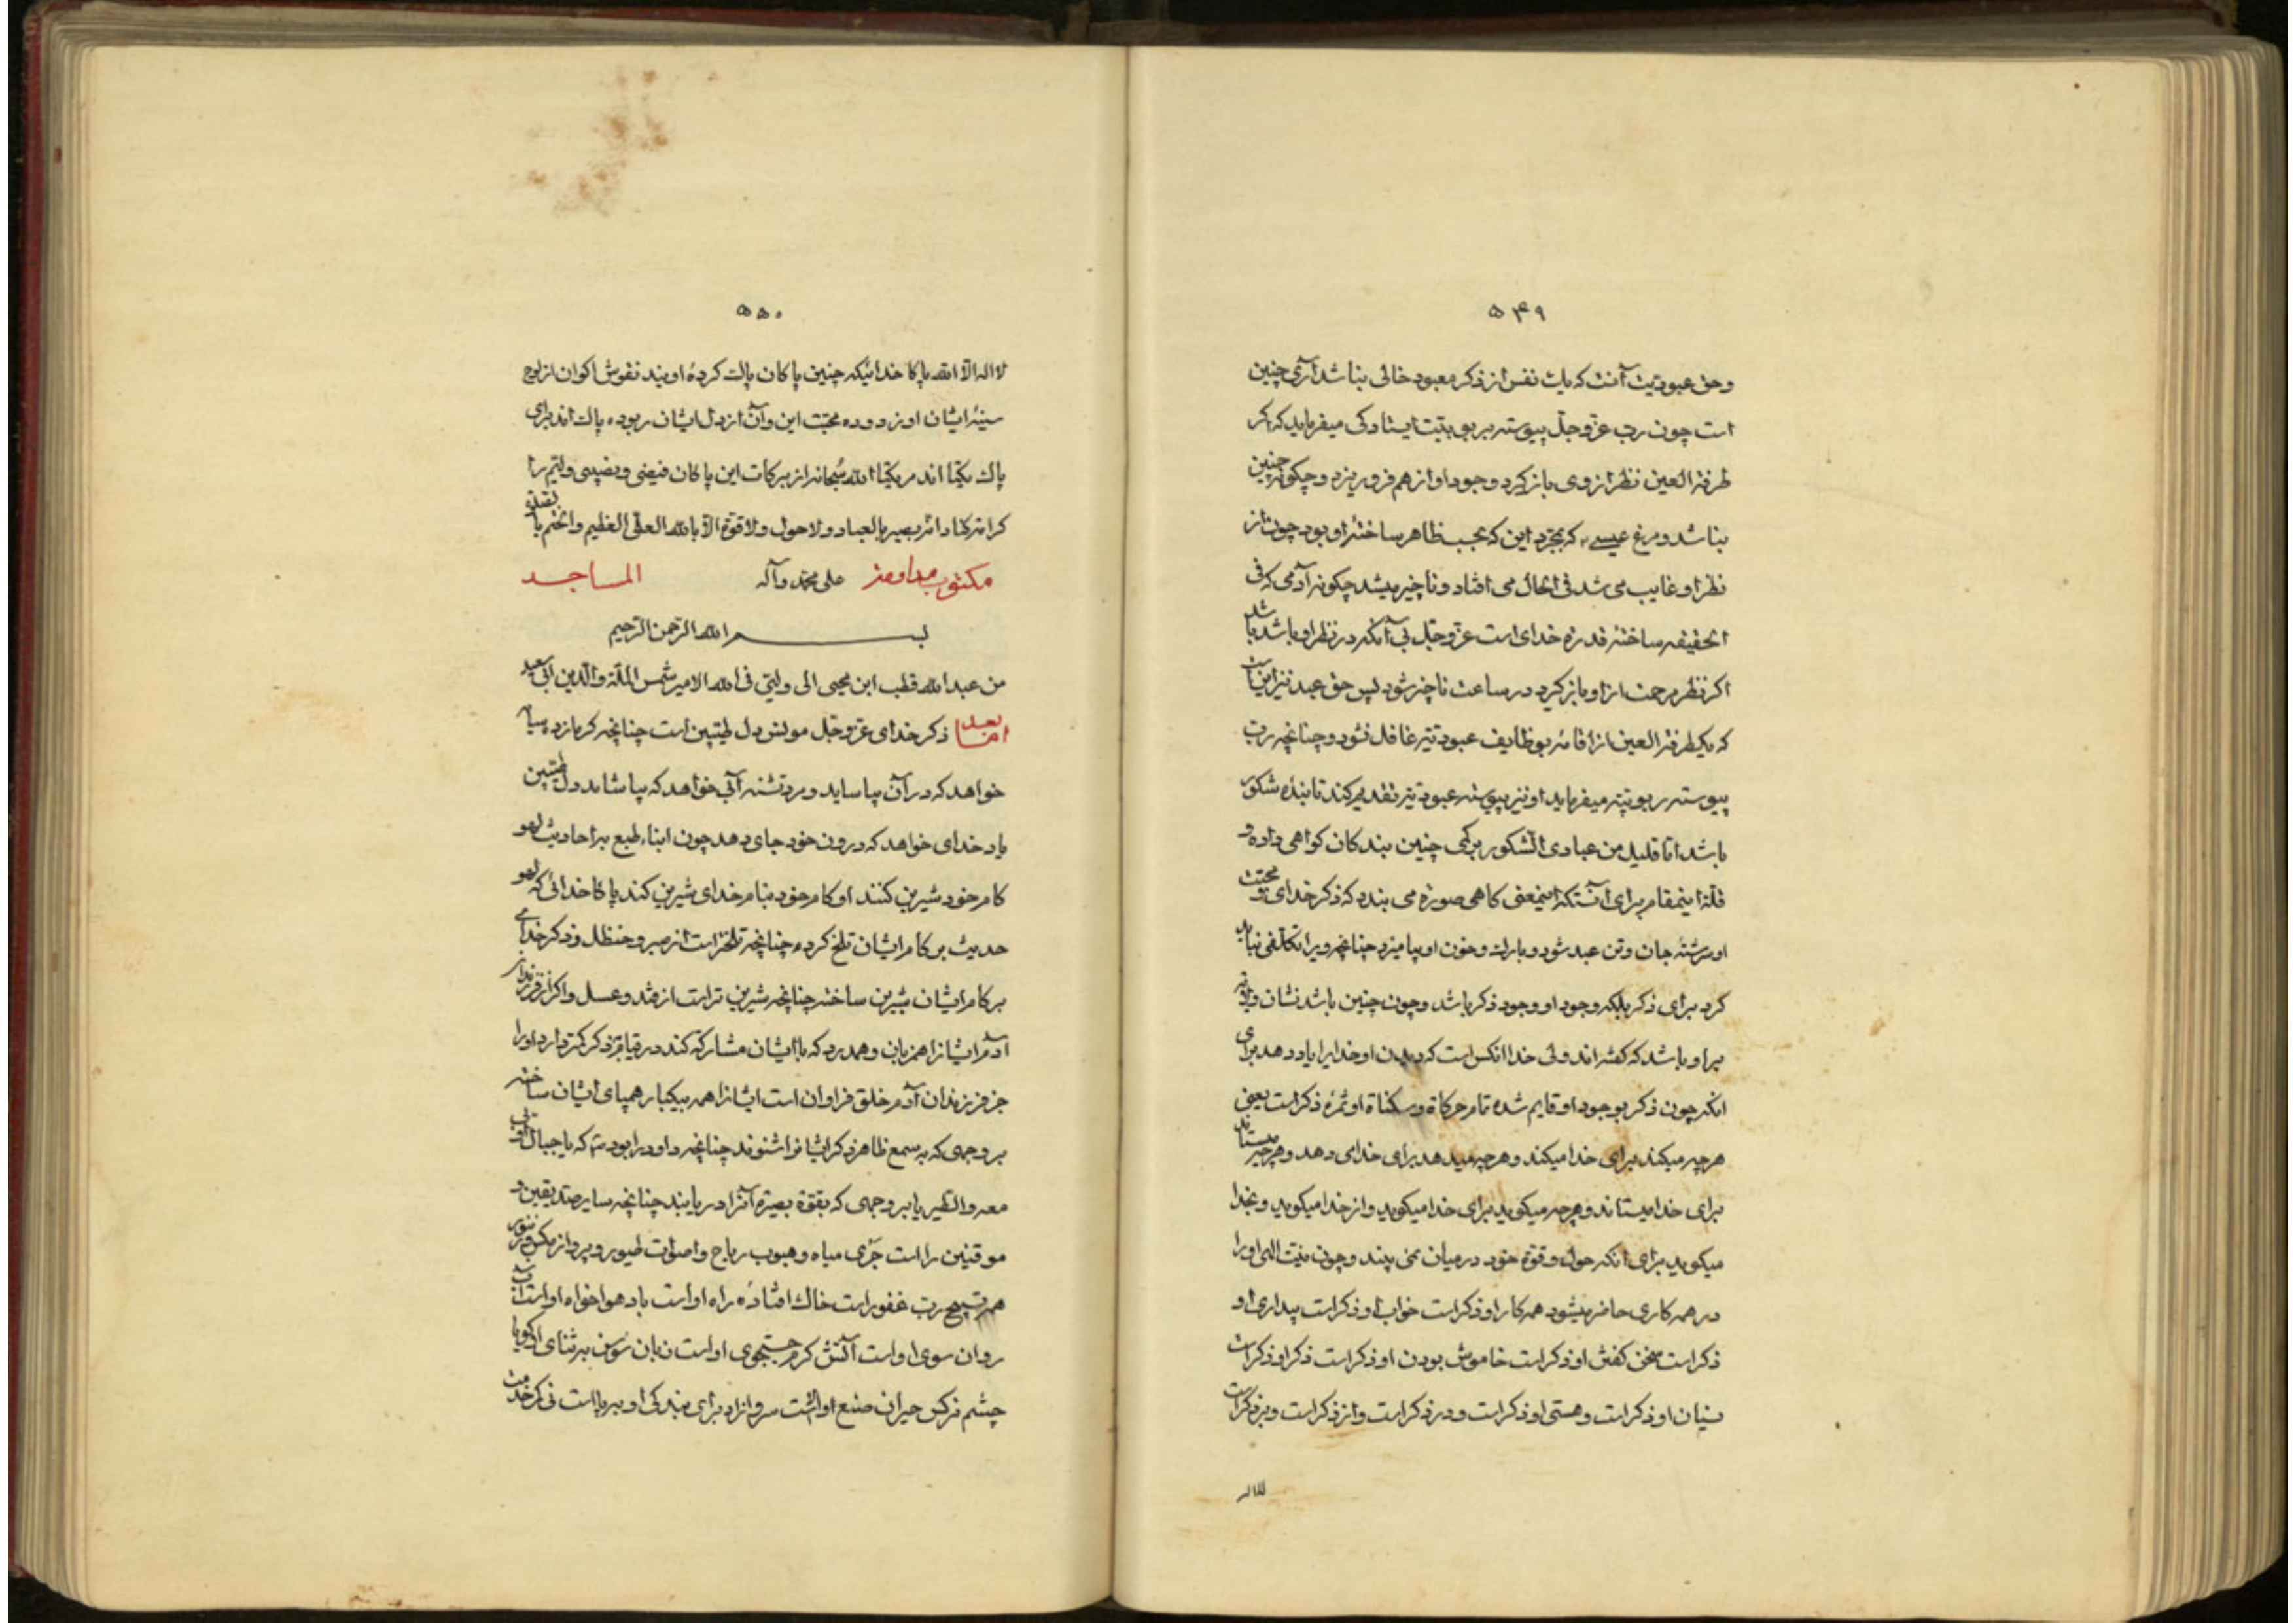 ۵۴۹
وحق عبودیت آنست که یک نفس از ذکر معبود خالی نباشد آری چنین
است چون رب عزوجل پیوسته بربوبیت ایستادکی میفرماید که اکر
طرفة العین نظر از وی بازکیرد وجود او از هم فرو ریزد وچکونه چنین
نباشد ومرغ عیسی که بمجرد این که بحسب ظاهر ساختهٔ او بود چون از
نظر او غایب می شد فی الحال می افتاد وناچیز میشد چکونه آدمی که فی
الحقیقه ساختهٔ قدرة خدای است عزوجل بی آنکه در نظر او باشد باشد
اکر نظر مرحمت از او بازکیرد در ساعت ناچیز شود پس حق عبد نیز این است
که یکطرفة العین از اقامه بوظایف عبودیته غافل نشود وچنانچه رب
پیوسته ربوبیته میفرماید او نیز پیوسته عبودیته تقدیم کند تا بندهٔ شکور
باشد اما قلیل من عبادی الشکور بر کمی چنین بندکان کواهی داده و
قلة اینمقام برای آنستکه اینمعنی کاهی صورة می بندد که ذکر خدای و محبت
او سرشتهٔ جان وتن عبد شود وبارک وخون او بیامیزد چنانچه ویرا تکلفی نباید
کرد برای ذکر بلکه وجود او وجود ذکر باشد وچون چنین باشد نشان ولایة
بر او باشد که کفته اند ولی خدا انکس است که دیدن او خدایرا یاد دهد برای
انکه چون ذکر بوجود او قایم شده تمام حرکاة وسکناة او ثمرهٔ ذکر است یعنی
هرچه میکند برای خدا میکند وهرچه میدهد برای خدای دهد وهرچه میستاند
برای خدا میستاند وهرچه میکوید برای خدا میکوید واز خدا میکوید وبخدا
میکوید برای انکه حول وقوة خود درمیان نمی بیند وچون نیت الهی او را
در همه کاری حاضر میشود همه کار او ذکر است خواب او ذکر است بیداری او
ذکر است سخن کفتن او ذکر است خاموش بودن او ذکر است ذکر او ذکر است
نسیان او ذکر است وهستی او ذکر است ودر ذکر است واز ذکر است وبر ذکر است
لااله
۵۵۰
لااله الا الله پاکا خدائیکه چنین پاکان پاک کردهٔ اویند نقوش اکوان از لوح
سینهٔ ایشان او زدوده محبت این وآن از دل ایشان ربوده پاک اند برای
پاک یکتا اند مر یکتا الله سبحانه از برکات این پاکان فیضی ونصیبی ولیم را
کرامة کناد انه بصیر بالعباد ولا حول ولا قوة الا بالله العلی العظیم واختم بالصلوة
مکتوب مداومة علی محمد وآله المساجد
بسم الله الرحمن الرحیم
من عبدالله قطب ابن محیی الی ولیی فی الله الامیر شمس الملة والدین ابی سعید
اما بعد ذکر خدای عزوجل مونس دل طیبین است چنانچه کرمازده سایهٔ
خواهد که در آن بیاساید ومرد تشنه آبی خواهد که بیاشامد دل طیبین
یاد خدای خواهد که درون خود جای دهد چون ابناء طبع براحادیث لهو
کام خود شیرین کنند او کام خود بنام خدای شیرین کند پاکا خدائی که لهو
حدیث بر کام ایشان تلخ کرده چنانچه تلخ تر است از صبر وحنظل وذکر خدای
بر کام ایشان شیرین ساخته چنانچه شیرین تر است از قند وعسل واکر از فرزندان
آدم ایشانرا همزبان وهمدرد که با ایشان مشارکة کند در قیام بذکر کمتر دارد او را
جز فرزندان آدم خلق فراوان است ایشانرا همه بیکبار همپای ایشان ساخته
بر وجهی که بسمع ظاهر ذکر ایشانرا شنوند چنانچه داود را بود که یا جبال اوبی
معه والطیر یا بر وجهی که بقوة بصیرة آنرا دریابند چنانچه سایر صدیقین و
موقنین را است جری میاه وهبوب ریاح واصوات طیور وپرواز مکس وزنبور
همه تسبیح رب غفور است خاک افتادهٔ راه او است باد هواخواه او است آب
روان سوی او است آتش کرم جستجوی او است زبان سوسن بر ثنای او کویا
چشم نرکس حیران صنع او است سرو آزاد برای بندکی او برپا است نی کمر خدمت